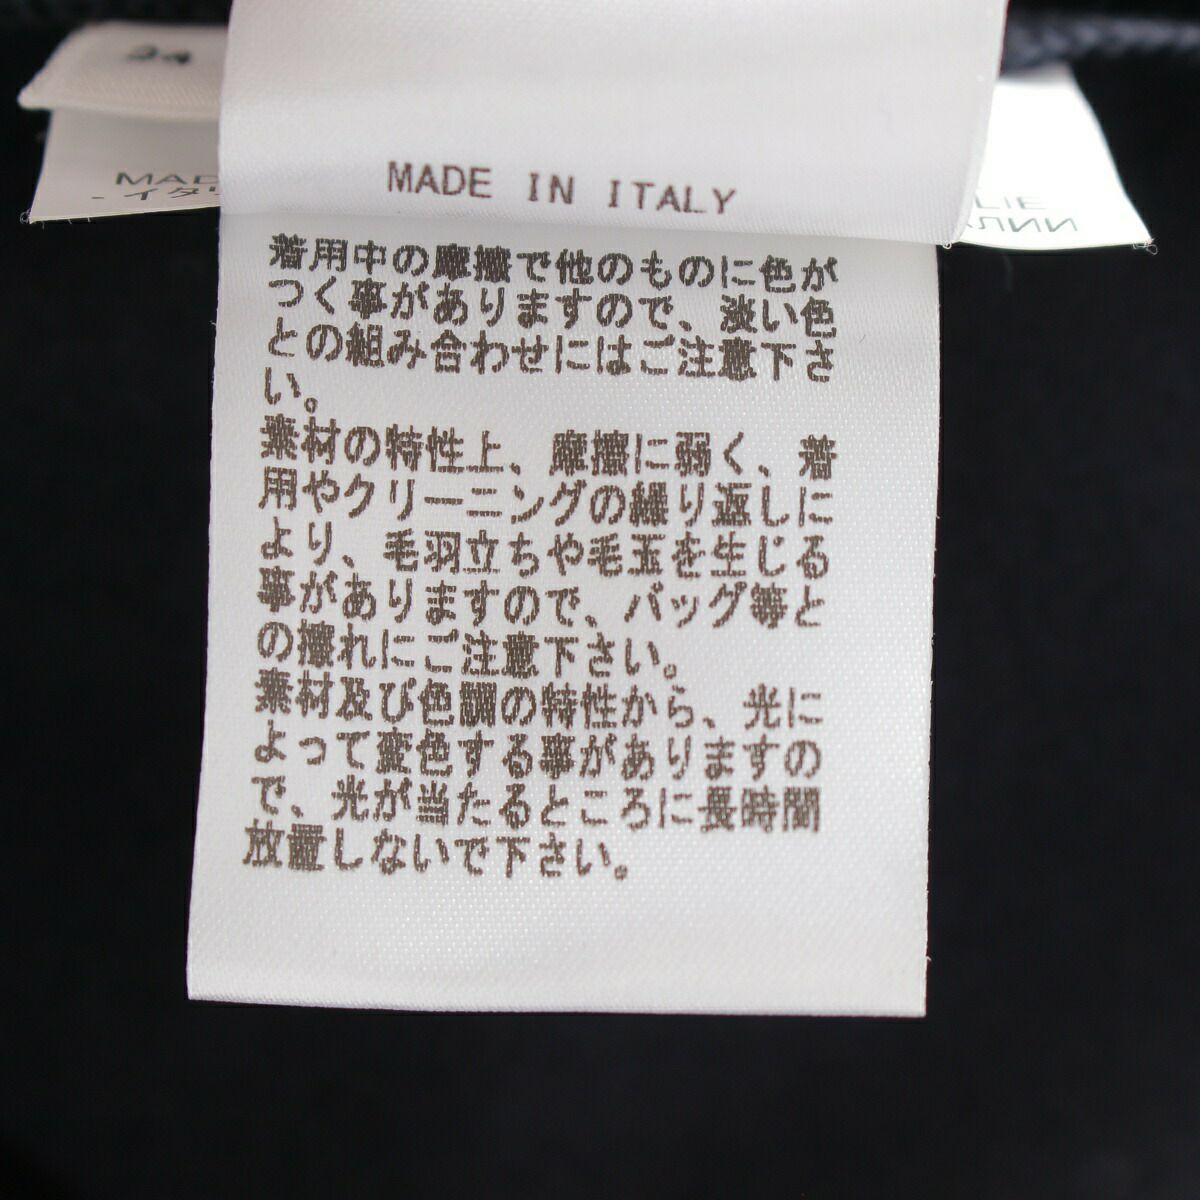 24
MADE IN ITALY
MAD
LIE
-イタリ
着用中の摩擦で他のものに色が
つく事がありますので、淡い色
との組み合わせにはご注意下さ
い。
素材の特性上、摩擦に弱く、着
用やクリーニングの繰り返しに
より、毛羽立ちや毛玉を生じる
事がありますので、バッグ等と
の擦れにご注意下さい。
素材及び色調の特性から、光に
よって変色する事がありますの
で、光が当たるところに長時間
放置しないで下さい。